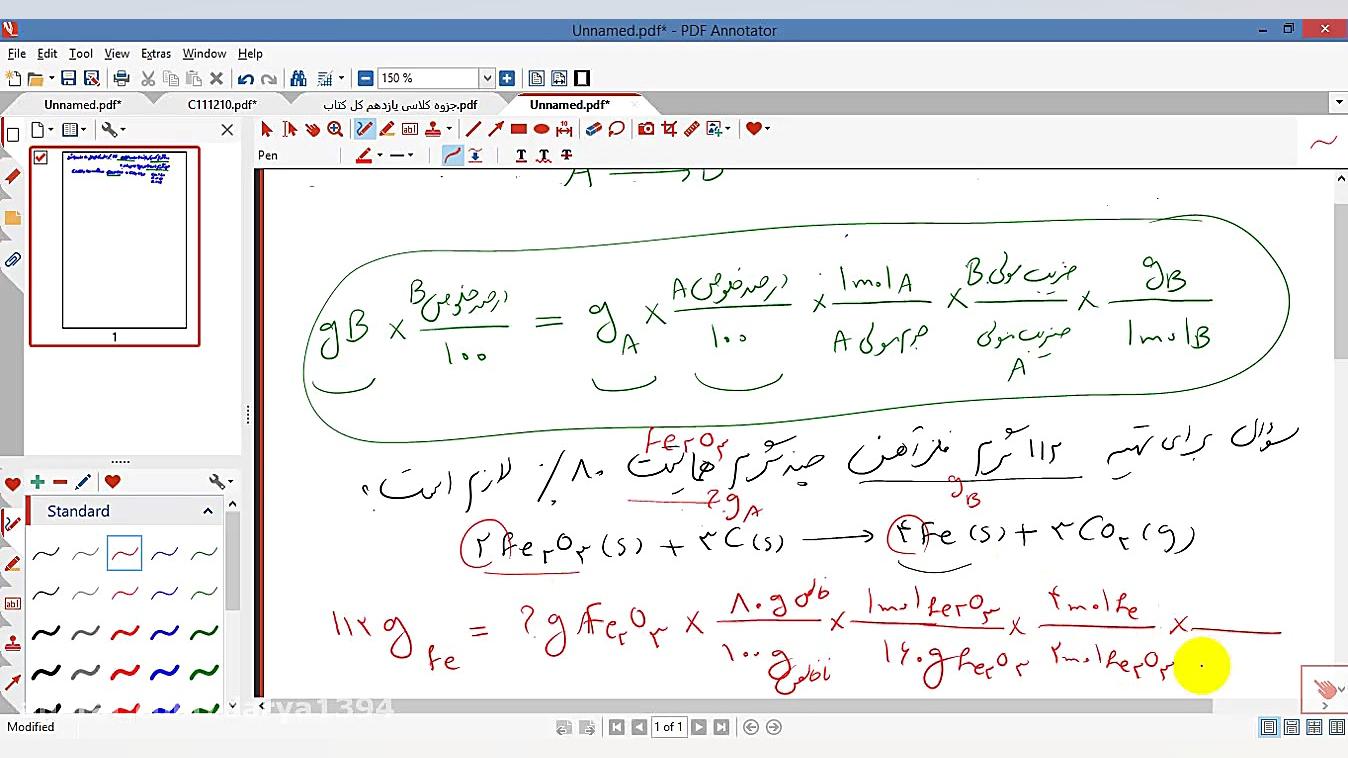 Unnamed.pdf* - PDF Annotator
File Edit Tool View Extras Window Help
150 %
Unnamed.pdf* C111210.pdf* جزوه کلاسی یازدهم کل کتاب.pdf Unnamed.pdf*
Pen
1
Standard
A ⟶ B
gB × درصد خلوص B / ۱۰۰ = gA × درصد خلوص A / ۱۰۰ × 1molA / جرم مولی A × ضریب مولی B / ضریب مولی A × gB / 1molB
سؤال برای تهیه ۱۱۲ گرم فلز آهن چند گرم هماتیت ۸۰٪ لازم است؟
Fe۲O۳
?gA gB
۲Fe۲O۳(s) + ۳C(s) ⟶ ۴Fe(s) + ۳CO۲(g)
۱۱۲ g Fe = ?g Fe۲O۳ × ۸۰g خالص / ۱۰۰g ناخالص × 1molFe۲O۳ / ۱۶۰gFe۲O۳ × ۴molFe / ۲molFe۲O۳ ×
1394
Modified
1 of 1